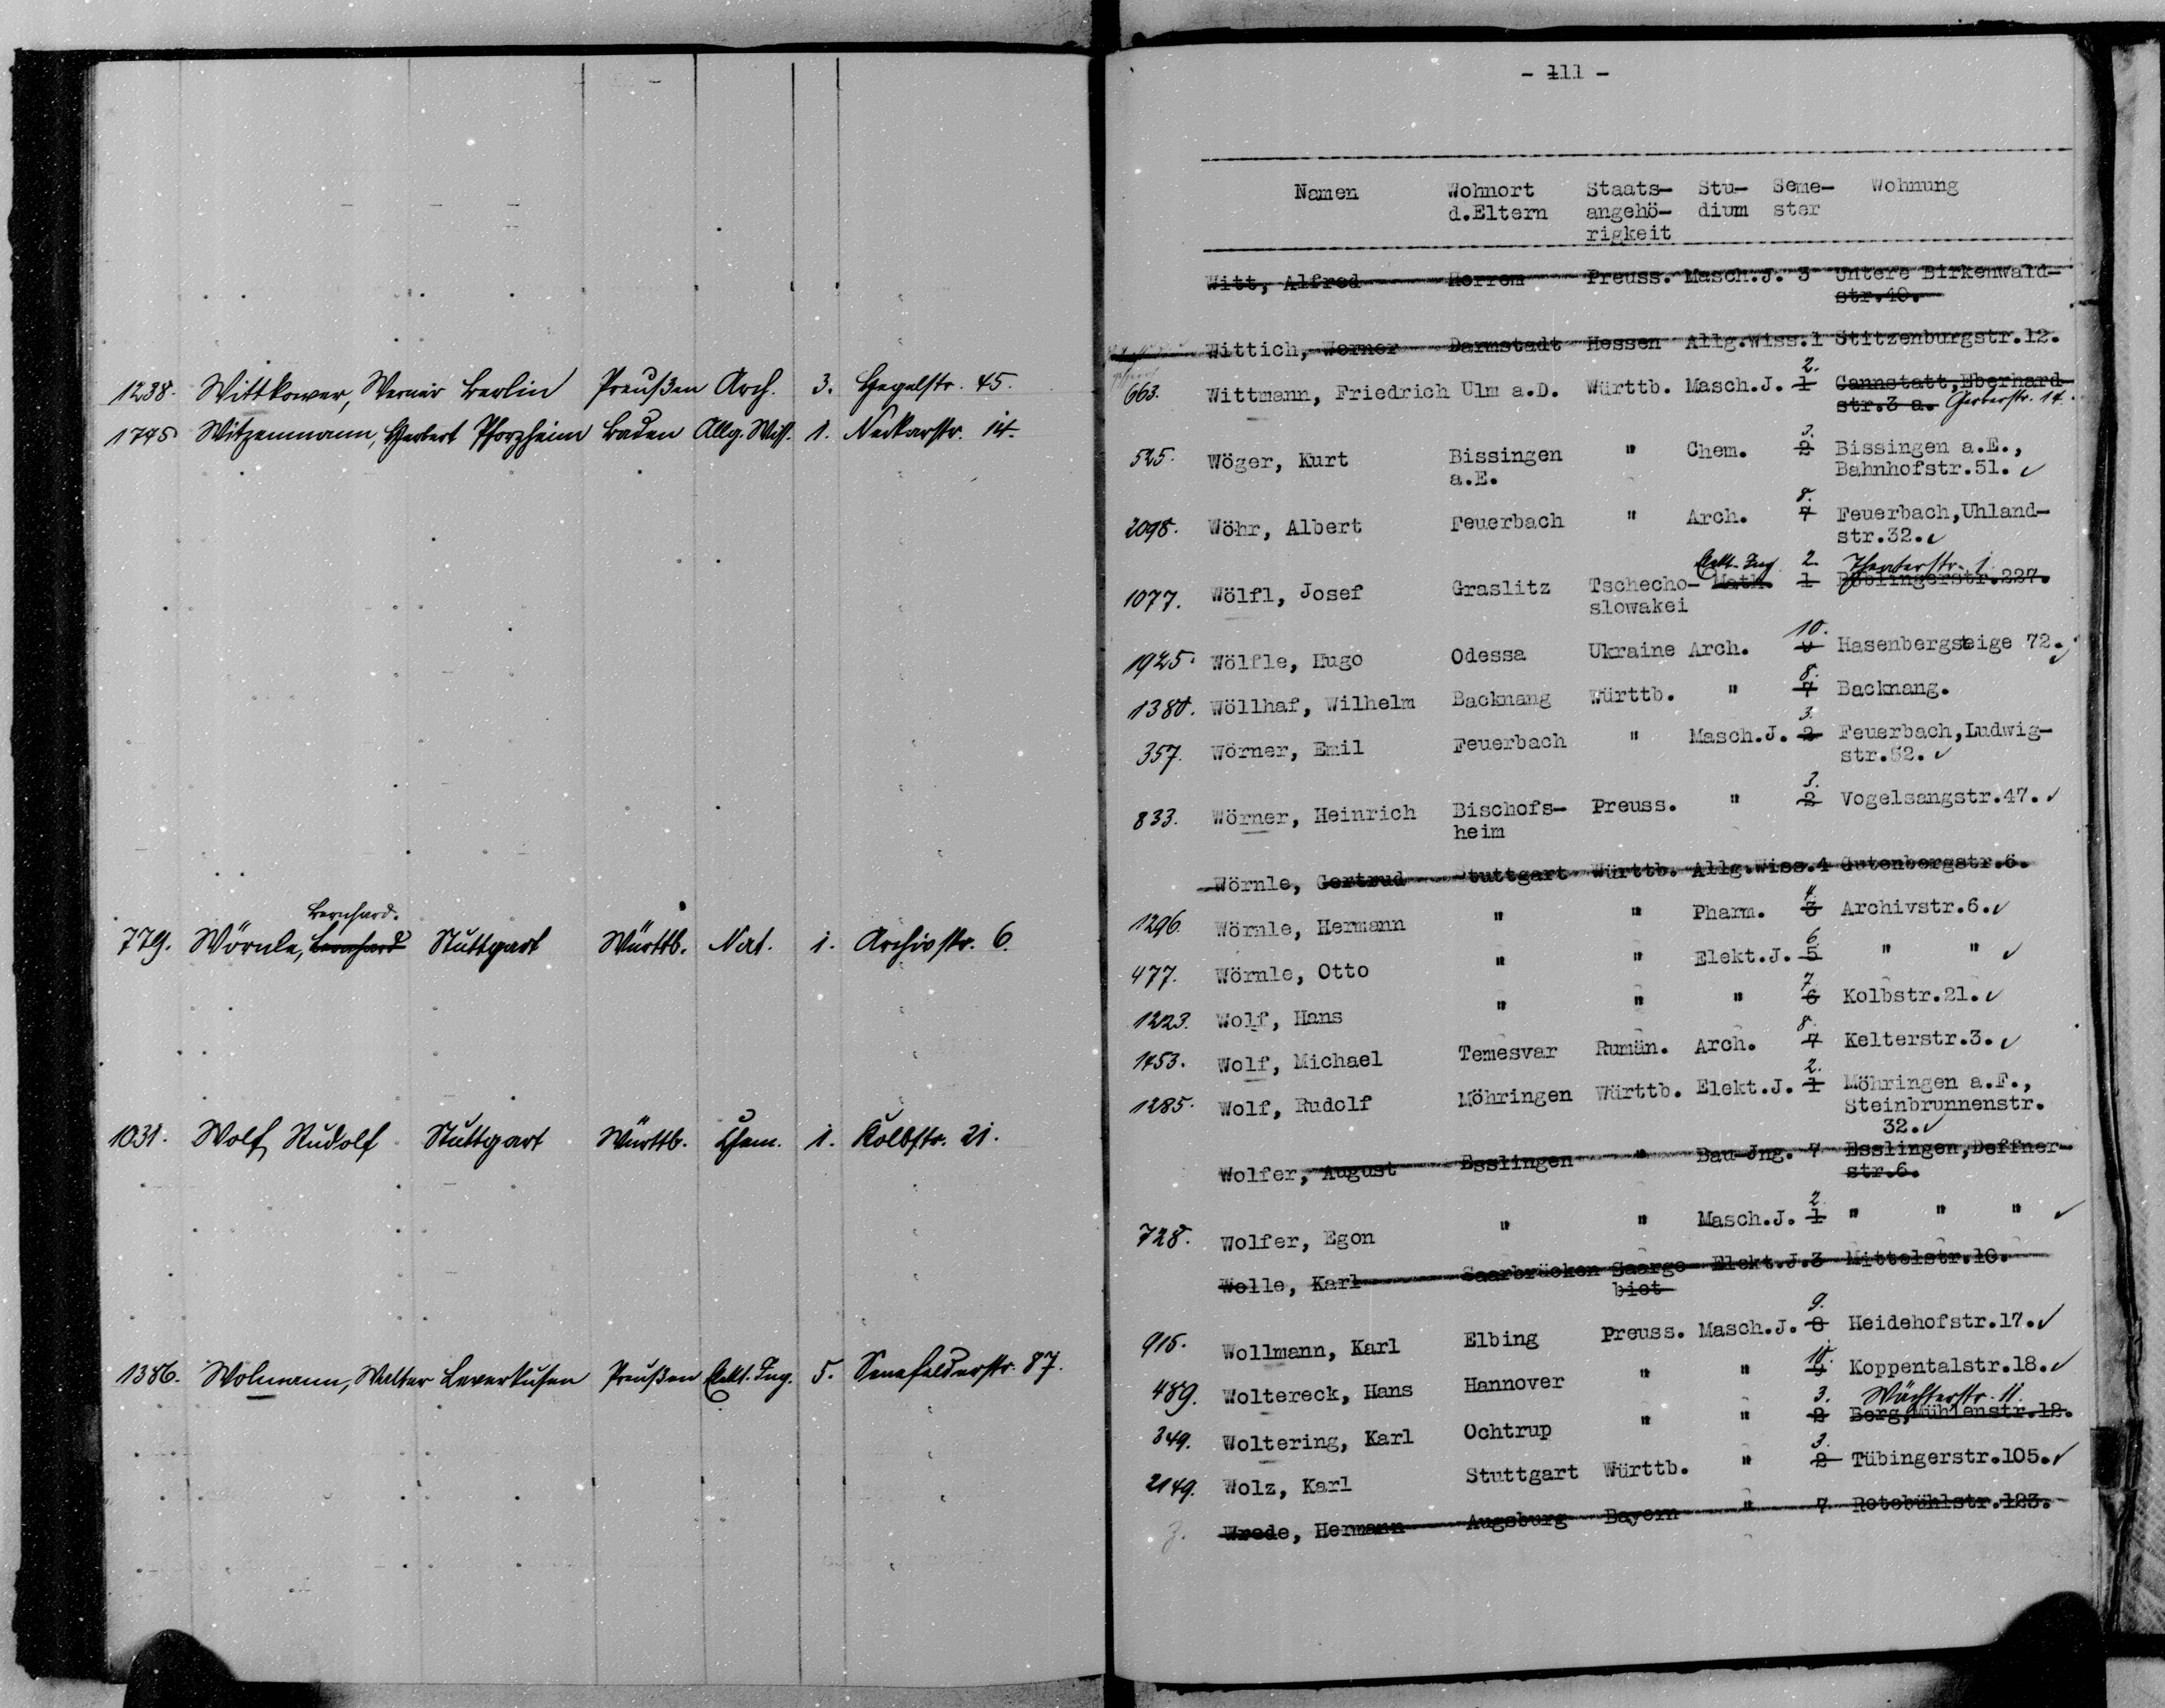 1238. Wittkower, Werner Berlin Preußen Arch. 3. Hegelstr. 45.
1745 Witzenmann, Herbert Pforzheim Baden Allg. Wiss. 1. Neckarstr. 14.
Bernhard.
779. Wörnle, Bernhard Stuttgart Württb. Nat. 1. Archivstr. 6.
1031. Wolf, Rudolf Stuttgart Württb. Chem. 1. Kolbstr. 21.
1386. Wolmann, Walter Leverkusen Preußen Elekt. Ing. 5. Senefelderstr. 87.
- 111 -
Namen Wohnort Staats- Stu- Seme- Wohnung
d.Eltern angehö- dium ster
rigkeit
Witt, Alfred Horrem Preuss. Masch.J. 3 Untere Birkenwald-
str.40.
Wittich, Werner Darmstadt Hessen Allg.Wiss.1 Stitzenburgstr.12.
2.
663. Wittmann, Friedrich Ulm a.D. Württb. Masch.J. 1 Cannstatt,Eberhard-
str.3 a. Gerberstr. 14.
3.
525. Wöger, Kurt Bissingen " Chem. 2 Bissingen a.E.,
a.E. Bahnhofstr.51. ✓
8.
2098. Wöhr, Albert Feuerbach " Arch. 7 Feuerbach,Uhland-
str.32. ✓
Elekt. Ing. 2. Theaterstr. 1.
1077. Wölfl, Josef Graslitz Tschecho- Math. 1 Böblingerstr.227.
slowakei
10.
1925. Wölfle, Hugo Odessa Ukraine Arch. Hasenbergsteige 72. ✓
8.
1380. Wöllhaf, Wilhelm Backnang Württb. " 7 Backnang.
3.
357. Wörner, Emil Feuerbach " Masch.J. 2 Feuerbach,Ludwig-
str.52. ✓
3.
833. Wörner, Heinrich Bischofs- Preuss. " 2 Vogelsangstr.47. ✓
heim
Wörnle, Gertrud Stuttgart Württb. Allg.Wiss.4 Gutenbergstr.6.
4.
1296. Wörnle, Hermann " " Pharm. 3 Archivstr.6. ✓
6.
477. Wörnle, Otto " " Elekt.J. 5 " " ✓
7.
1223. Wolf, Hans " " " 6 Kolbstr.21. ✓
8.
1453. Wolf, Michael Temesvar Rumän. Arch. 7 Kelterstr.3. ✓
2.
1285. Wolf, Rudolf Möhringen Württb. Elekt.J. 1 Möhringen a.F.,
Steinbrunnenstr.
32. ✓
Wolfer, August Esslingen " Bau-Jng. 7 Esslingen,Deffner-
str.6.
2.
728. Wolfer, Egon " " Masch.J. 1 " " " ✓
Wolle, Karl Saarbrücken Saarge- Elekt.J.3 Mittelstr.10.
biet
9.
915. Wollmann, Karl Elbing Preuss. Masch.J. 8 Heidehofstr.17. ✓
10.
489. Woltereck, Hans Hannover " " Koppentalstr.18. ✓
3. Wächterstr. 11.
349. Woltering, Karl Ochtrup " " 2 Berg,Mühlenstr.12.
3.
2149. Wolz, Karl Stuttgart Württb. " 2 Tübingerstr.105. ✓
Wrede, Hermann Augsburg Bayern " 7 Rotebühlstr.123.